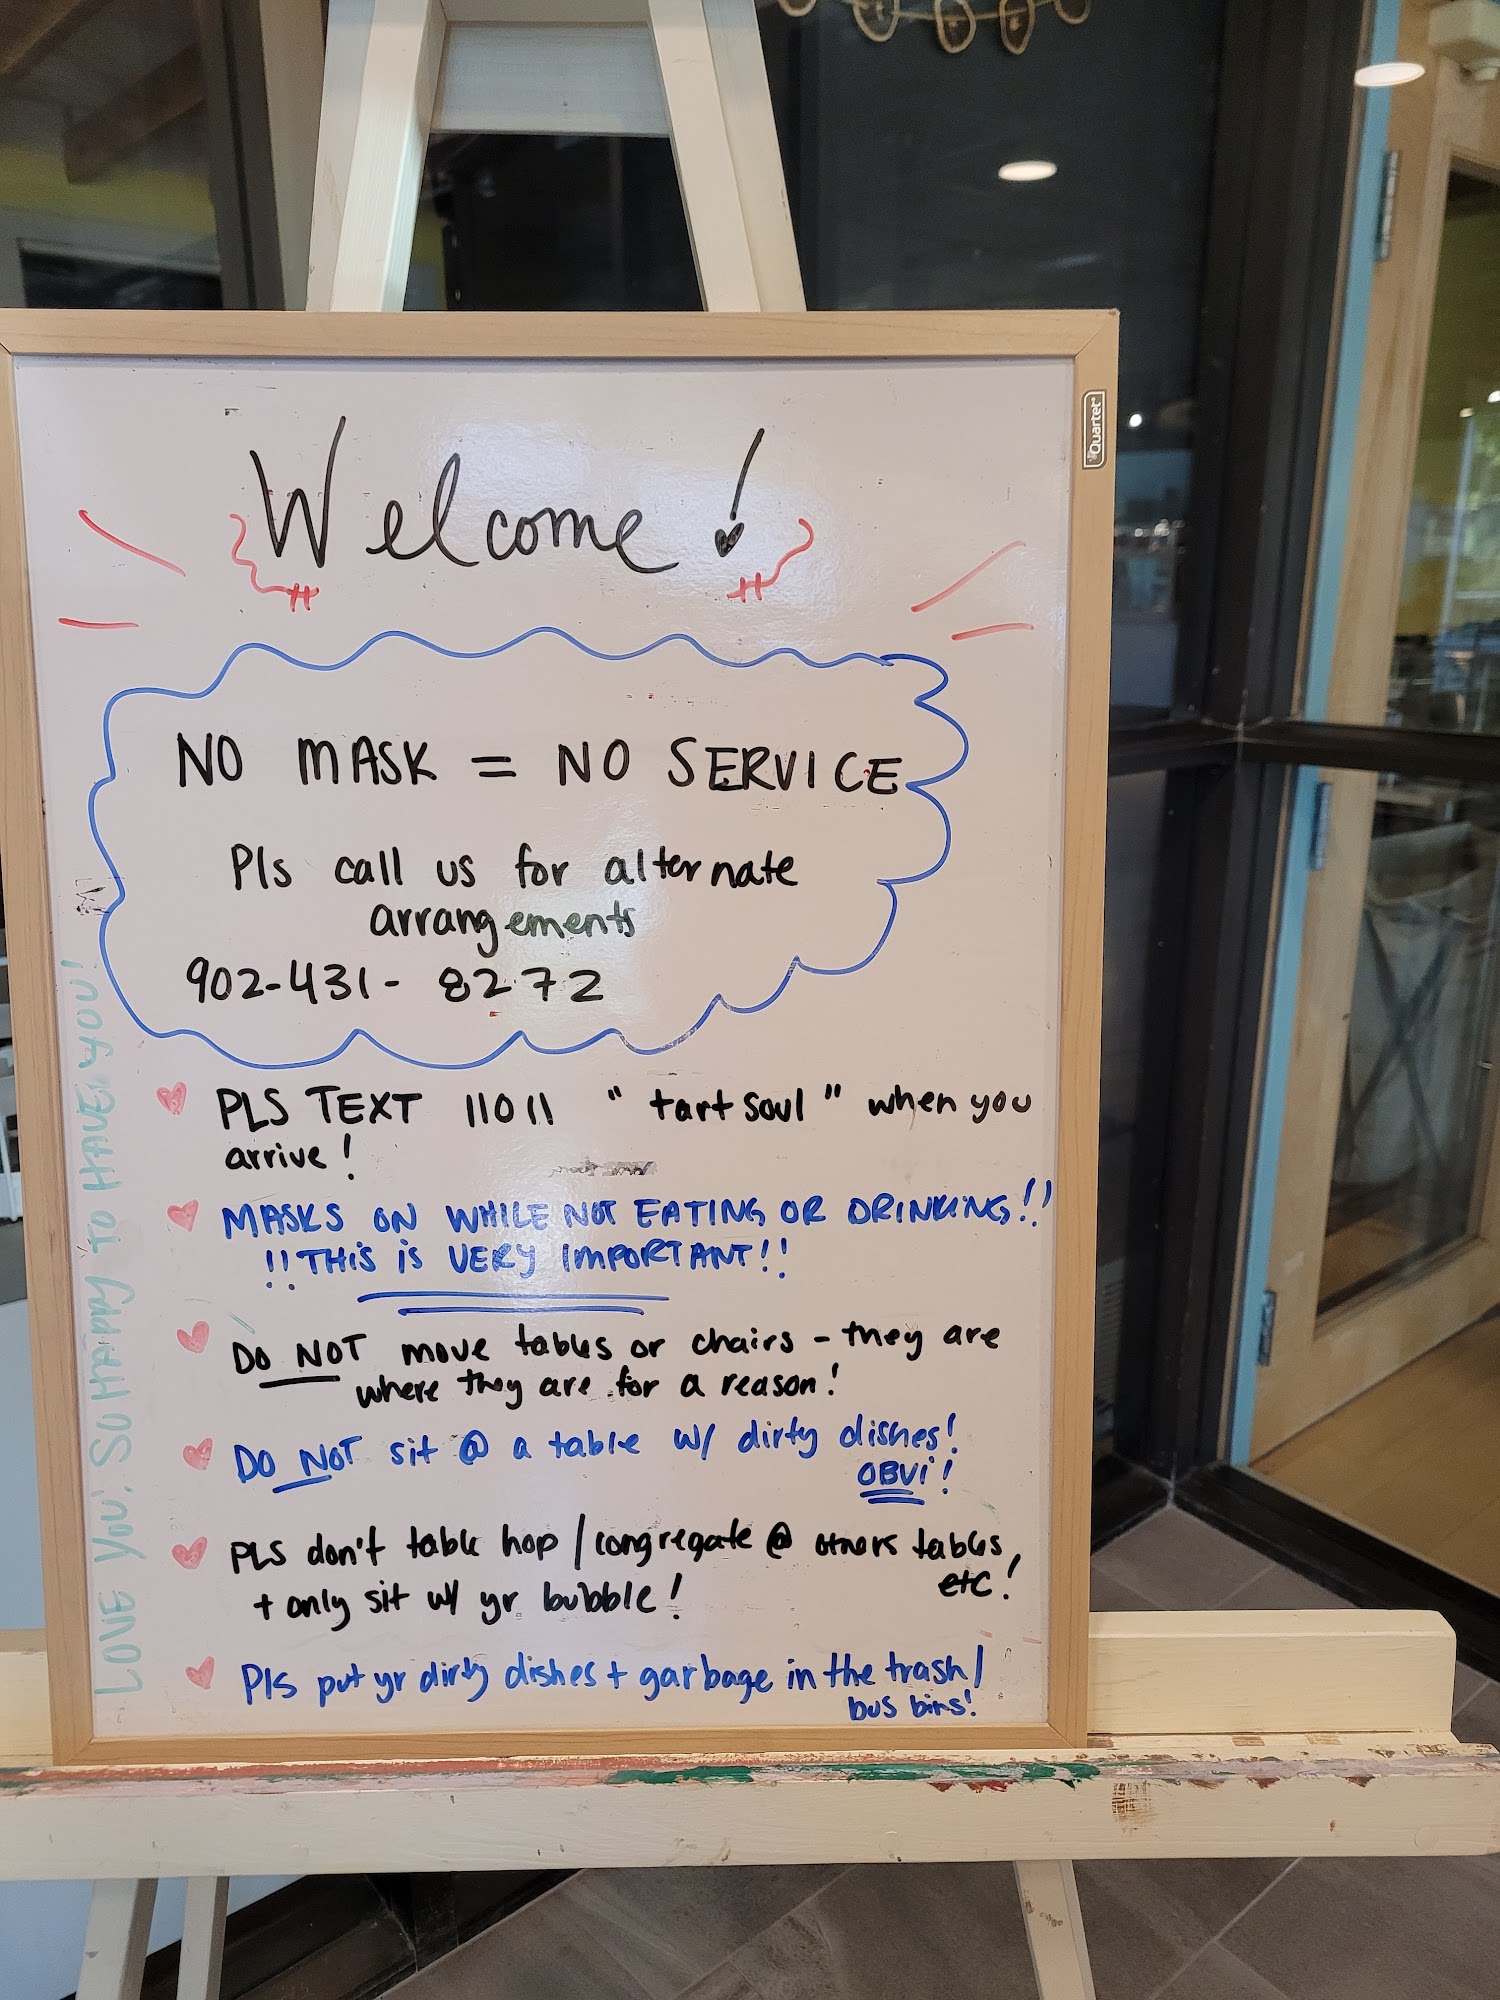 Quartet
Welcome!
NO MASK = NO SERVICE
Pls call us for alternate
arrangements
902-431-8272
PLS TEXT 11011 "tart soul" when you
arrive!
MASKS ON WHILE NOT EATING OR DRINKING!!
!!THIS is VERY IMPORTANT!!
DO NOT move tables or chairs - they are
where they are for a reason!
DO NOT sit @ a table w/ dirty dishes!
OBVi!
PLS don't table hop / congregate @ others tables,
etc!
+ only sit w/ yr bubble!
Pls put yr dirty dishes + garbage in the trash/
bus bins!
LOVE YOU! SO HAPPY TO HAVE YOU!